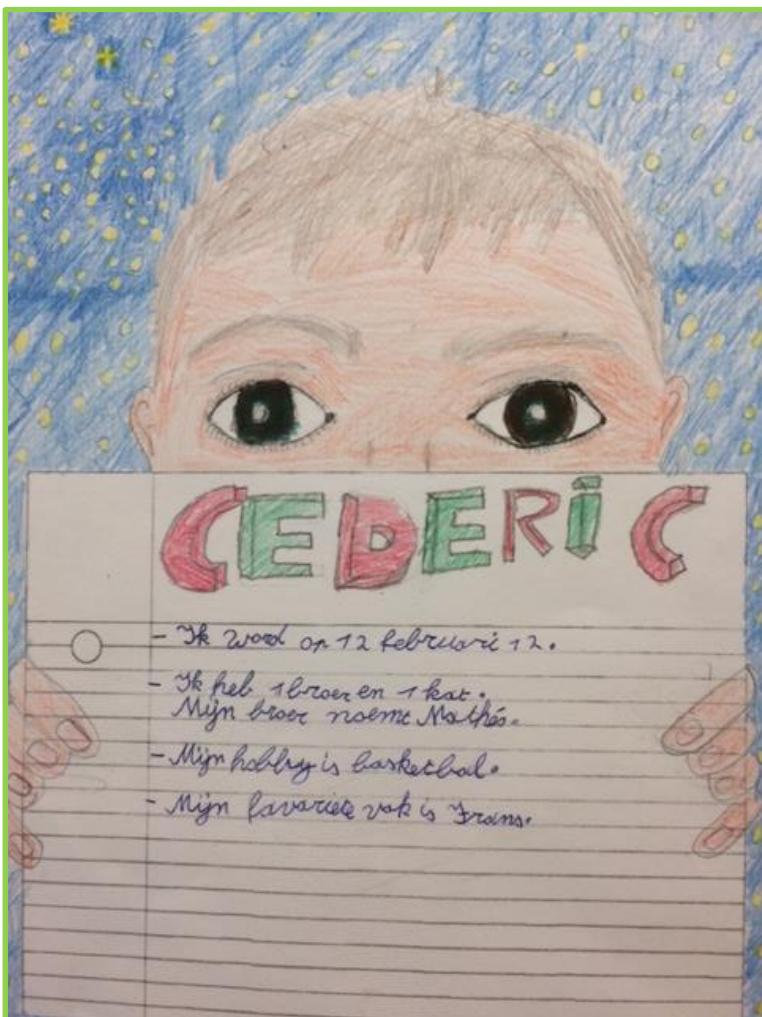 CEDERIC
- Ik word op 12 februari 12.
- Ik heb 1 broer en 1 kat.
Mijn broer noemt Mathés.
- Mijn hobby is basketbal.
- Mijn favoriete vak is Frans.